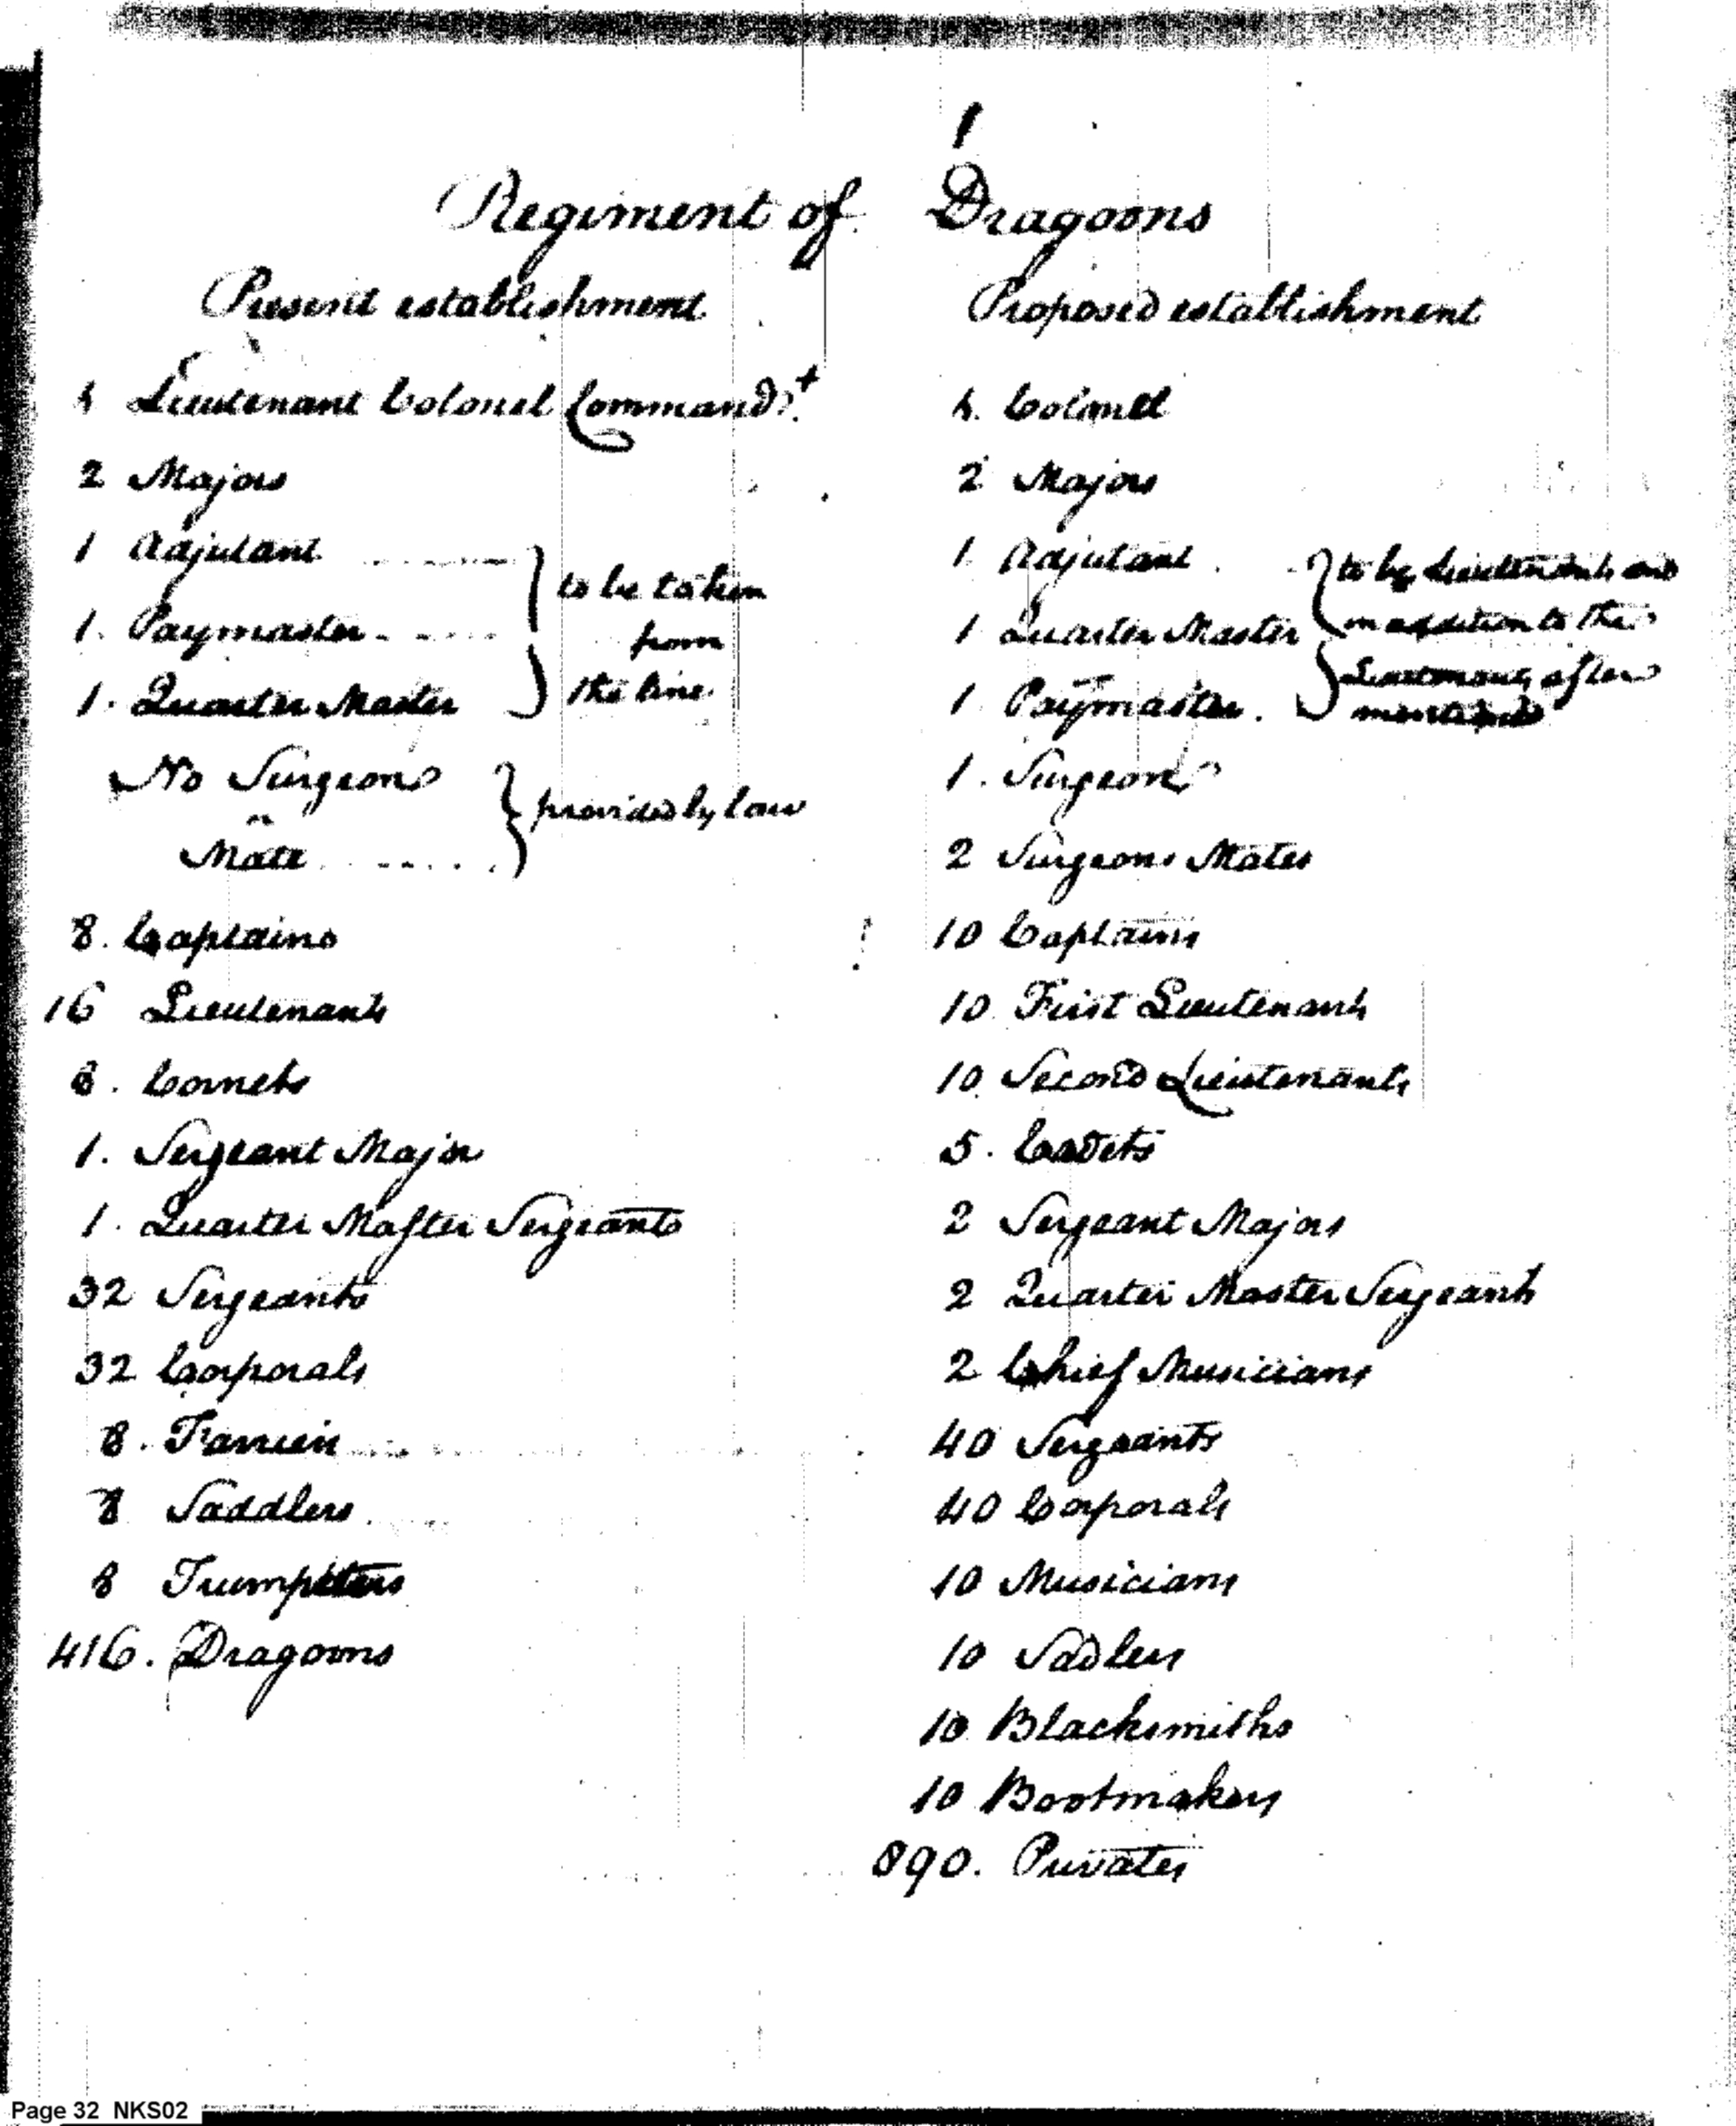 Regiment of Dragoons
Present establishment
1 Lieutenant Colonel Command.t +
2 Majors
1 Adjutant
1. Paymaster
1. Quarter Master
to be taken
from
the line.
No Surgeons
"
Mate
provided by law
8. Captains
16 Lieutenants
8. Cornets
1. Sergeant Major
1. Quarter Master Sergeants
32 Sergeants
32 Corporals
8. Farriers
8 Saddlers
8 Trumpeters
416. Dragoons
Proposed establishment
1. Colonel
2 Majors
1 Adjutant
1 Quarter Master
1 Paymaster
to be Lieutenants and
in addition to the
Lieutenants after
mentioned
1. Surgeon
2 Surgeons Mates
10 Captains
10 First Lieutenants
10 Second Lieutenants
5. Cadets
2 Sergeant Majors
2 Quarter Master Sergeants
2 Chief Musicians
40 Sergeants
40 Corporals
10 Musicians
10 Sadlers
10 Blacksmiths
10 Bootmakers
890. Privates
Page 32 NKS02